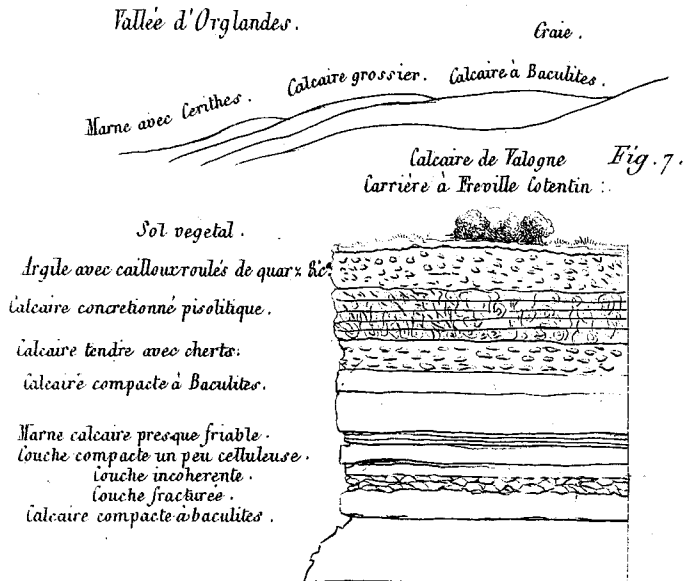 Vallée d'Orglandes.
Craie.
Calcaire grossier.
Calcaire à Baculites.
Marne avec Cerithes.
Calcaire de Valogne
Fig. 7.
Carrière à Freville Cotentin :
Sol vegetal.
Argile avec cailloux roulés de quarz &c.
Calcaire concretionné pisolitique.
Calcaire tendre avec cherts.
Calcaire compacte à Baculites.
Marne calcaire presque friable.
Couche compacte un peu celluleuse.
Couche incoherente.
Couche fracturée.
Calcaire compacte à baculites.